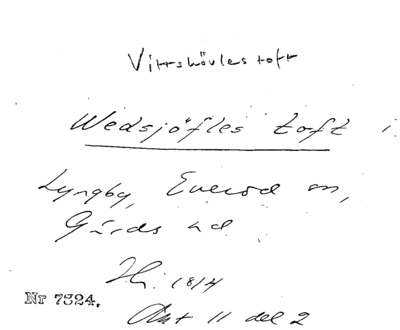 Vittskövles toft
Wedsjöfles toft i
Lyngby, Everöd sn,
Gärds hd
Hi. 1814
Nr 7324.
Akt 11 del 2